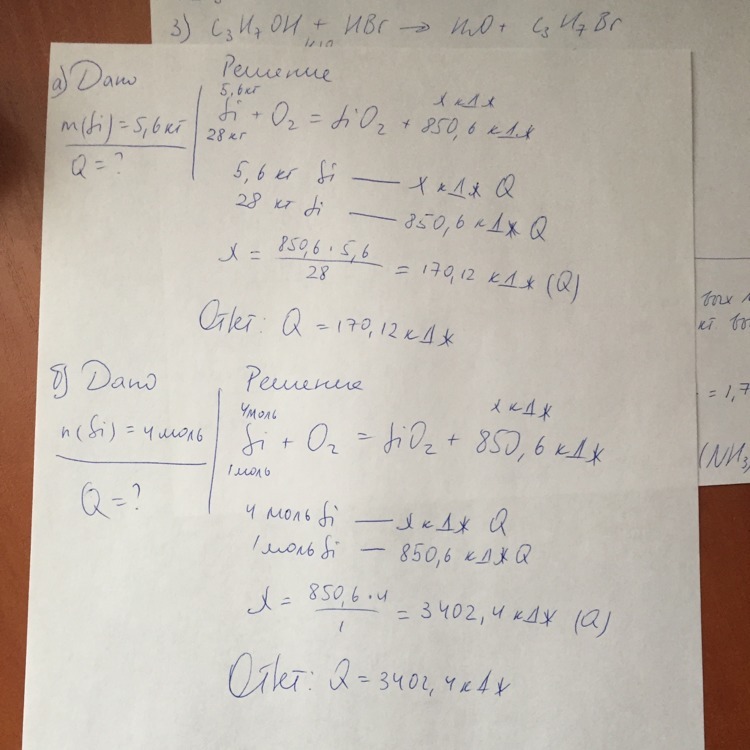 3) C₃H₇OH + HBr → H₂O + C₃H₇Br
а) Дано
Решение
m(Si) = 5,6 кг
Q = ?
5,6 кг
x кДж
Si + O₂ = SiO₂ + 850,6 кДж
28 кг
5,6 кг Si — x кДж Q
28 кг Si — 850,6 кДж Q
x = 850,6 · 5,6 / 28 = 170,12 кДж (Q)
Ответ: Q = 170,12 кДж
б) Дано
Решение
n(Si) = 4 моль
Q = ?
4 моль
x кДж
Si + O₂ = SiO₂ + 850,6 кДж
1 моль
4 моль Si — x кДж Q
1 моль Si — 850,6 кДж Q
x = 850,6 · 4 / 1 = 3402,4 кДж (Q)
Ответ: Q = 3402,4 кДж
= 1,7
(NH₃)